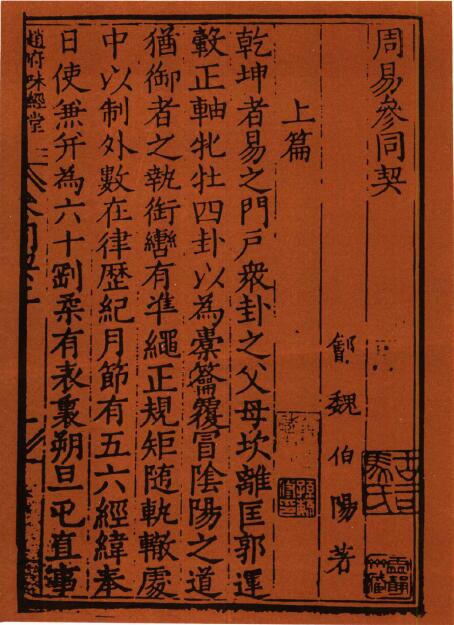 周易參同契
魏伯陽著
上篇
乾坤者易之門戶衆卦之父母坎離匡郭運
轂正軸牝牡四卦以為橐籥覆冒陰陽之道
猶御者之執銜轡有凖繩正規矩随軌轍處
中以制外數在律歷紀月節有五六經緯奉
日使兼并為六十剛柔有表裏朔旦屯直事
趙府味經堂